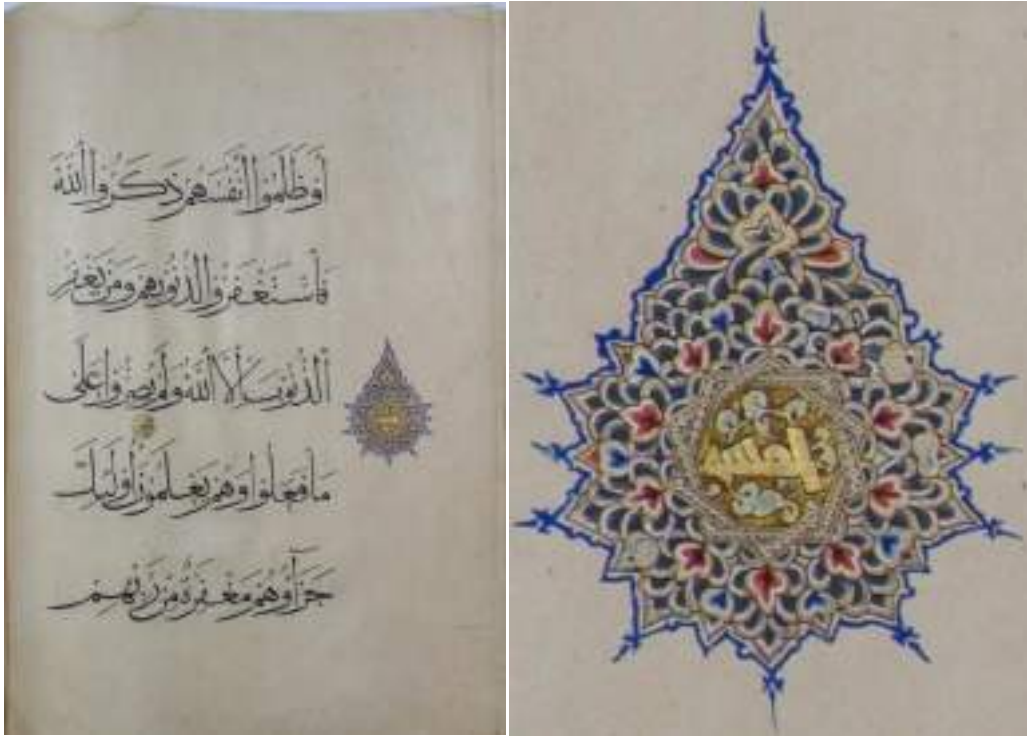 أَوْ ظَلَمُوا أَنْفُسَهُمْ ذَكَرُوا اللَّهَ
فَاسْتَغْفَرُوا لِذُنُوبِهِمْ وَمَنْ يَغْفِرُ
الذُّنُوبَ إِلَّا اللَّهُ وَلَمْ يُصِرُّوا عَلَى
مَا فَعَلُوا وَهُمْ يَعْلَمُونَ أُولَئِكَ
جَزَآؤُهُمْ مَغْفِرَةٌ مِنْ رَبِّهِمْ